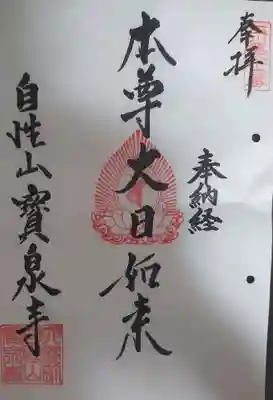 奉拝
奉納経
本尊大日如来
自性山寳泉寺